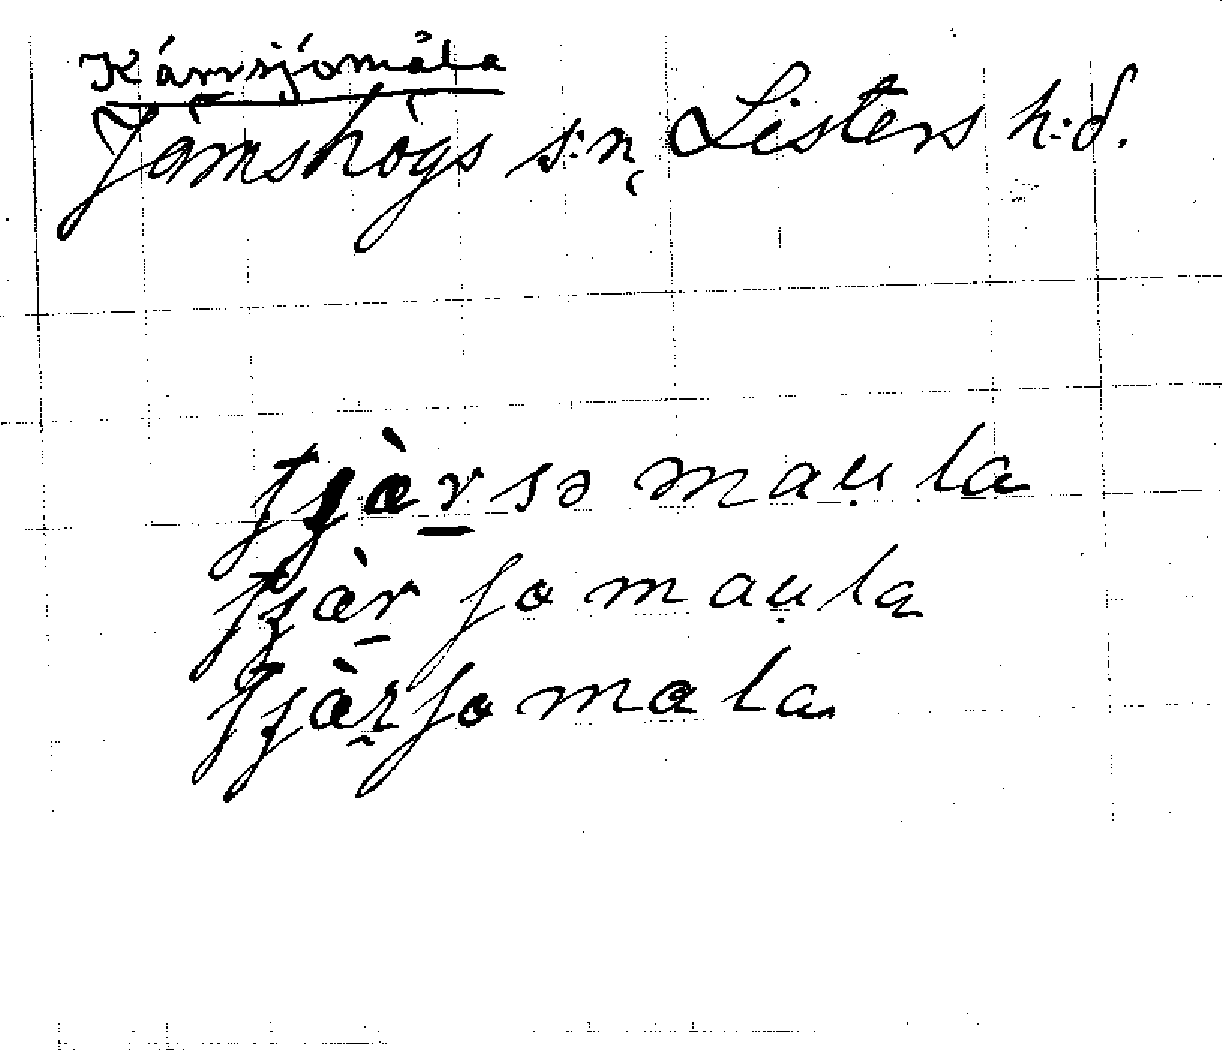 Kärrsjömåla
Jämshögs s:n, Listers h:d.
tjæ̀r̲sɔ mau̩la
tjæ̀r̲ ʃo mau̩la
tjæ̀rʃomala